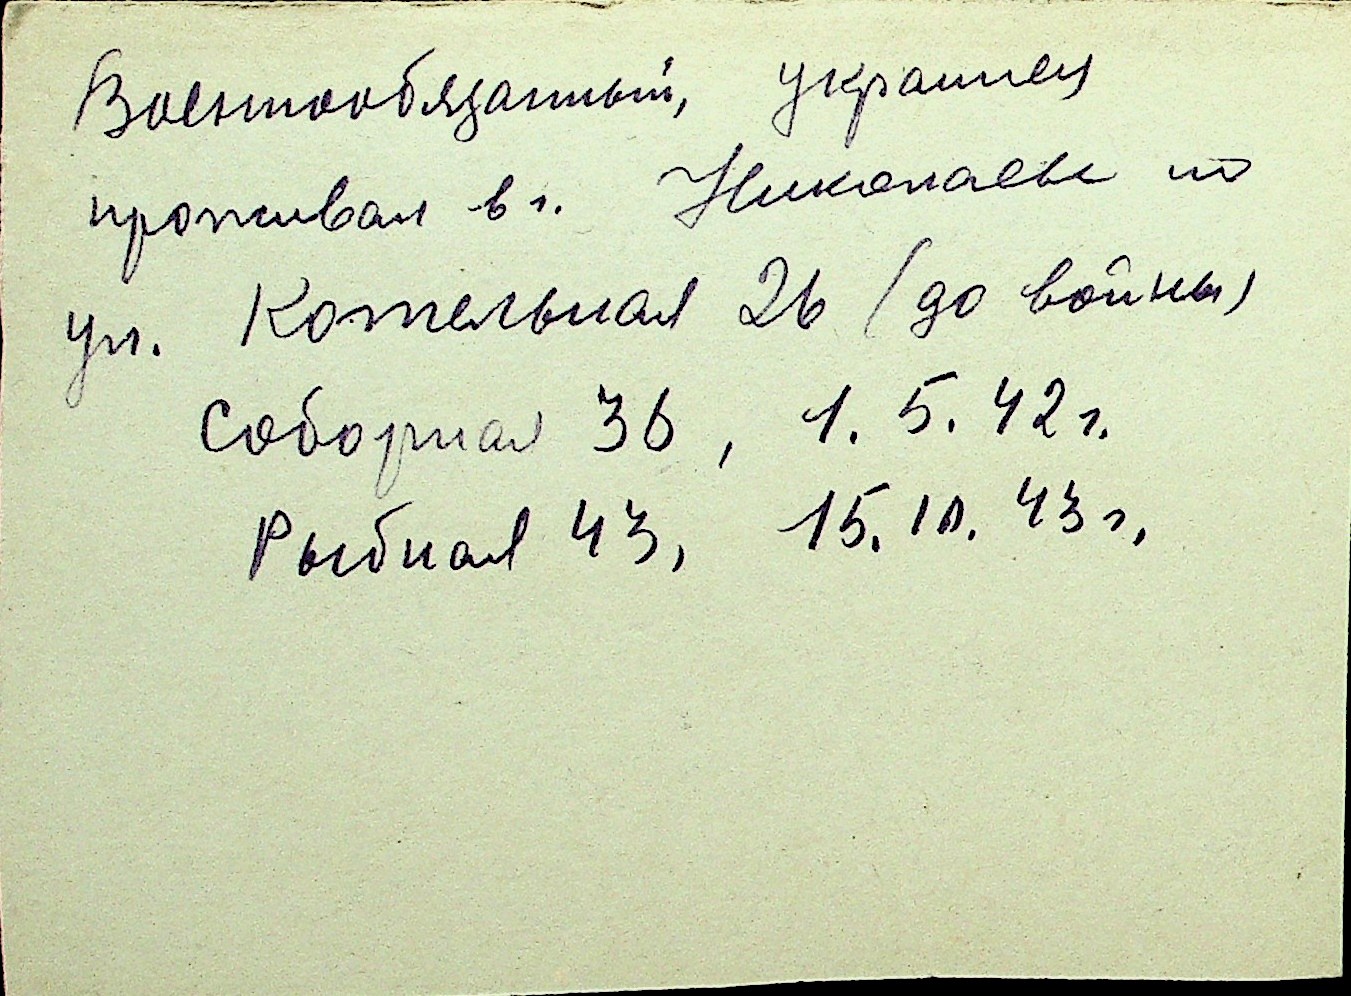 Военнообязанный, украинец
проживал в г. Николаеве по
ул. Котельная 26 (до войны)
Соборная 36, 1.5.42г.
Рыбная 43, 15.10.43г.